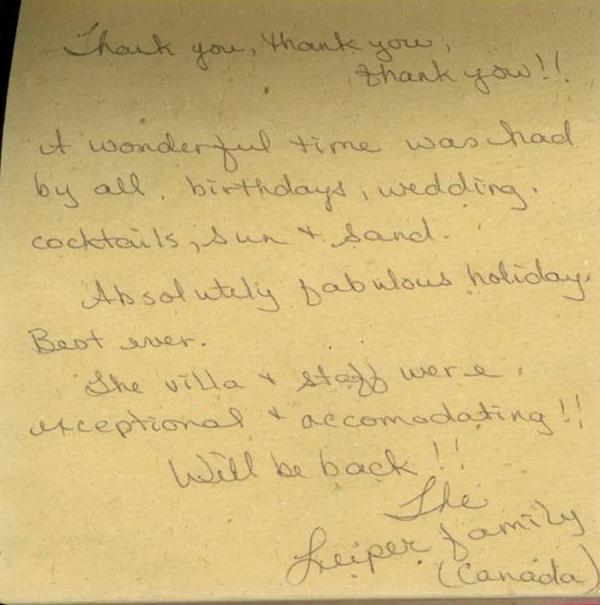 Thank you, thank you,
thank you!!
A wonderful time was had
by all. birthdays, wedding,
cocktails, sun + sand.
Absolutely fabulous holiday.
Best ever.
The villa + staff were
exceptional + accomodating!!
Will be back!!
The
Leiper family
(Canada)